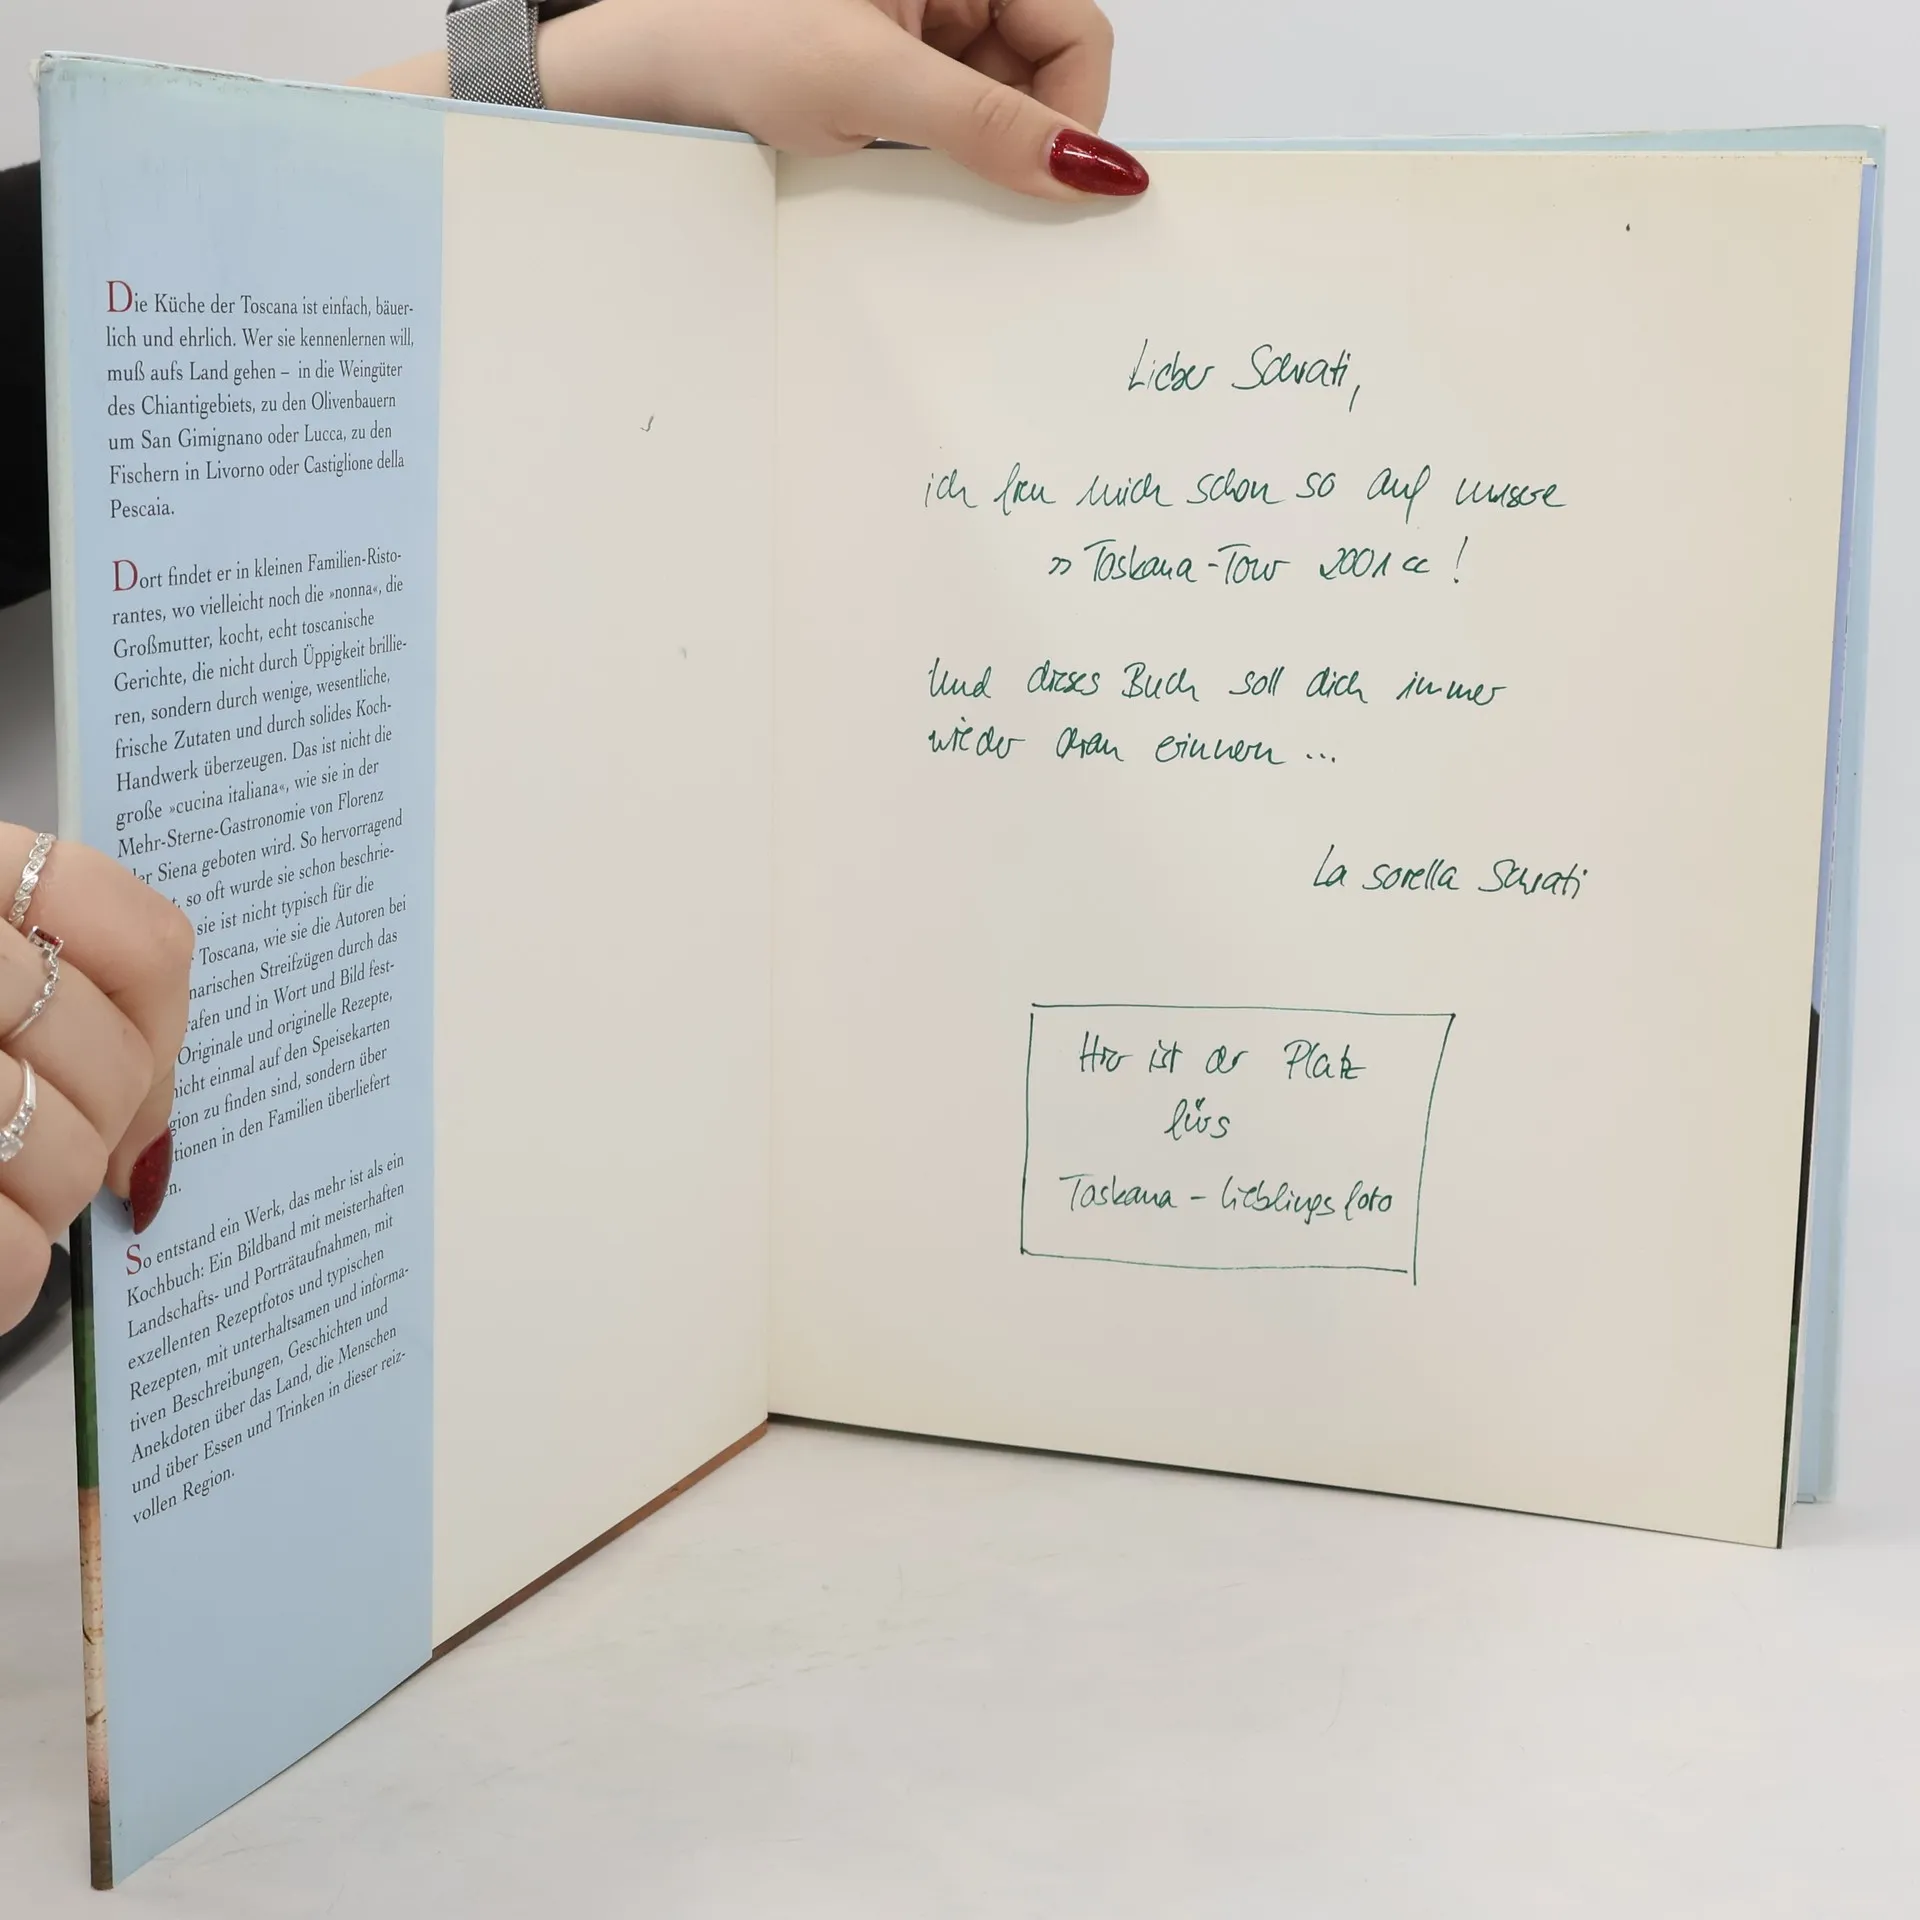 Die Küche der Toscana ist einfach, bäuer-
lich und ehrlich. Wer sie kennenlernen will,
muß aufs Land gehen – in die Weingüter
des Chiantigebiets, zu den Olivenbauern
um San Gimignano oder Lucca, zu den
Fischern in Livorno oder Castiglione della
Pescaia.
Dort findet er in kleinen Familien-Risto-
rantes, wo vielleicht noch die »nonna«, die
Großmutter, kocht, echt toscanische
Gerichte, die nicht durch Üppigkeit brillie-
ren, sondern durch wenige, wesentliche,
frische Zutaten und durch solides Koch-
Handwerk überzeugen. Das ist nicht die
große »cucina italiana«, wie sie in der
Mehr-Sterne-Gastronomie von Florenz
Siena geboten wird. So hervorragend
so oft wurde sie schon beschrie-
sie ist nicht typisch für die
Toscana, wie sie die Autoren bei
Streifzügen durch das
und in Wort und Bild fest-
Originale und originelle Rezepte,
einmal auf den Speisekarten
zu finden sind, sondern über
in den Familien überliefert
So entstand ein Werk, das mehr ist als ein
Kochbuch: Ein Bildband mit meisterhaften
Landschafts- und Porträtaufnahmen, mit
exzellenten Rezeptfotos und typischen
Rezepten, mit unterhaltsamen und informa-
tiven Beschreibungen, Geschichten und
Anekdoten über das Land, die Menschen
und über Essen und Trinken in dieser reiz-
vollen Region.
Lieber
ich freu mich schon so auf unsere
»Toskana-Tour 2001«!
Und dieses Buch soll dich immer
wieder dran erinnern ...
La sorella
Hier ist der Platz
fürs
Toskana - Lieblingsfoto